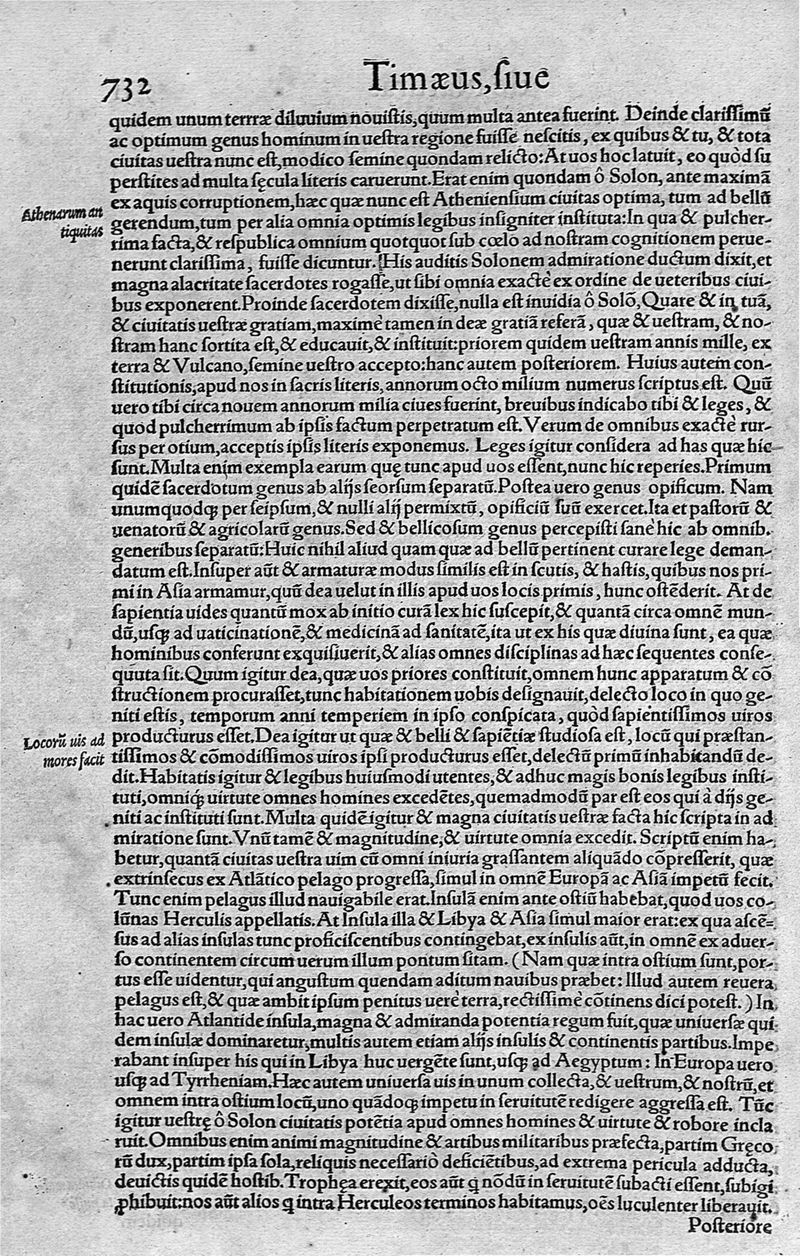 732
Timæus, ſiue
quidem unum terrræ diluuium nouiſtis, quum multa antea fuerint. Deinde clariſſimū
ac optimum genus hominum in ueſtra regione fuiſſe neſcitis, ex quibus & tu, & tota
ciuitas ueſtra nunc eſt, modico ſemine quondam relicto: At uos hoc latuit, eo quòd ſu
perſtites ad multa ſęcula literis caruerunt. Erat enim quondam ô Solon, ante maximā
ex aquis corruptionem, hæc quæ nunc eſt Athenienſium ciuitas optima, tum ad bellū
Athenarum an
tiquitas
gerendum, tum per alia omnia optimis legibus inſigniter inſtituta: In qua & pulcher-
rima facta, & reſpublica omnium quotquot ſub cœlo ad noſtram cognitionem perue-
nerunt clariſſima, fuiſſe dicuntur. His auditis Solonem admiratione ductum dixit, et
magna alacritate ſacerdotes rogaſſe, ut ſibi omnia exactè ex ordine de ueteribus ciui-
bus exponerent. Proinde ſacerdotem dixiſſe, nulla eſt inuidia ô Solō, Quare & in tuā,
& ciuitatis ueſtræ gratiam, maximè tamen in deæ gratiā referā, quæ & ueſtram, & no-
ſtram hanc ſortita eſt, & educauit, & inſtituit: priorem quidem ueſtram annis mille, ex
terra & Vulcano, ſemine ueſtro accepto: hanc autem poſteriorem. Huius autem con-
ſtitutionis, apud nos in ſacris literis, annorum octo milium numerus ſcriptus eſt. Quū
uero tibi circa nouem annorum milia ciues fuerint, breuibus indicabo tibi & leges, &
quod pulcherrimum ab ipſis factum perpetratum eſt. Verum de omnibus exactè rur-
ſus per otium, acceptis ipſis literis exponemus. Leges igitur conſidera ad has quæ hic
ſunt. Multa enim exempla earum quę tunc apud uos eſſent, nunc hic reperies. Primum
quidē ſacerdotum genus ab alijs ſeorſum ſeparatū. Poſtea uero genus opificum. Nam
unumquodq; per ſeipſum, & nulli alij permixtū, opificiū ſuū exercet. Ita et paſtorū &
uenatorū & agricolarū genus. Sed & bellicoſum genus percepiſti ſanè hic ab omnib.
generibus ſeparatū: Huic nihil aliud quam quæ ad bellū pertinent curare lege deman-
datum eſt. Inſuper aūt & armaturæ modus ſimilis eſt in ſcutis, & haſtis, quibus nos pri-
mi in Aſia armamur, quū dea uelut in illis apud uos locis primis, hunc oſtēderit. At de
ſapientia uides quantū mox ab initio curā lex hic ſuſcepit, & quantā circa omnē mun-
dū, uſq; ad uaticinationē, & medicinā ad ſanitatē, ita ut ex his quæ diuina ſunt, ea quæ
hominibus conferunt exquiſiuerit, & alias omnes diſciplinas ad hæc ſequentes conſe-
quuta ſit. Quum igitur dea, quæ uos priores conſtituit, omnem hunc apparatum & cō
ſtructionem procuraſſet, tunc habitationem uobis deſignauit, delecto loco in quo ge-
niti eſtis, temporum anni temperiem in ipſo conſpicata, quòd ſapientiſſimos uiros
Locorū uis ad
mores facit
producturus eſſet. Dea igitur ut quæ & belli & ſapiētiæ ſtudioſa eſt, locū qui præſtan-
tiſſimos & cōmodiſſimos uiros ipſi producturus eſſet, delectū primū inhabitandū de-
dit. Habitatis igitur & legibus huiuſmodi utentes, & adhuc magis bonis legibus inſti-
tuti, omniq; uirtute omnes homines excedētes, quemadmodū par eſt eos qui à dijs ge-
niti ac inſtituti ſunt. Multa quidē igitur & magna ciuitatis ueſtræ facta hic ſcripta in ad
miratione ſunt. Vnū tamē & magnitudine, & uirtute omnia excedit. Scriptū enim ha-
betur, quantā ciuitas ueſtra uim cū omni iniuria graſſantem aliquādo cōpreſſerit, quæ
extrinſecus ex Atlātico pelago progreſſa, ſimul in omnē Europā ac Aſiā impetū fecit.
Tunc enim pelagus illud nauigabile erat. Inſulā enim ante oſtiū habebat, quod uos co-
lūnas Herculis appellatis. At Inſula illa & Libya & Aſia ſimul maior erat: ex qua aſcē-
ſus ad alias inſulas tunc proficiſcentibus contingebat, ex inſulis aūt, in omnē ex aduer-
ſo continentem circum uerum illum pontum ſitam. (Nam quæ intra oſtium ſunt, por-
tus eſſe uidentur, qui anguſtum quendam aditum nauibus præbet: Illud autem reuera
pelagus eſt, & quæ ambit ipſum penitus uerè terra, rectiſſimè cōtinens dici poteſt.) In
hac uero Atlantide inſula, magna & admiranda potentia regum fuit, quæ uniuerſæ qui
dem inſulæ dominaretur, multis autem etiam alijs inſulis & continentis partibus. Impe
rabant inſuper his qui in Libya huc uergēte ſunt, uſq; ad Aegyptum: In Europa uero
uſq; ad Tyrrheniam. Hæc autem uniuerſa uis in unum collecta, & ueſtrum, & noſtrū, et
omnem intra oſtium locū, uno quādoq; impetu in ſeruitutē redigere aggreſſa eſt. Tūc
igitur ueſtrę ô Solon ciuitatis potētia apud omnes homines & uirtute & robore incla
ruit. Omnibus enim animi magnitudine & artibus militaribus præfecta, partim Gręco
rū dux, partim ipſa ſola, reliquis neceſſariò deficiētibus, ad extrema pericula adducta,
deuictis quidē hoſtib. Trophęa erexit, eos aūt q nōdū in ſeruitutē ſubacti eſſent, ſubigi
ꝓhibuit: nos aūt alios q intra Herculeos terminos habitamus, oēs luculenter liberauit.
Poſteriore